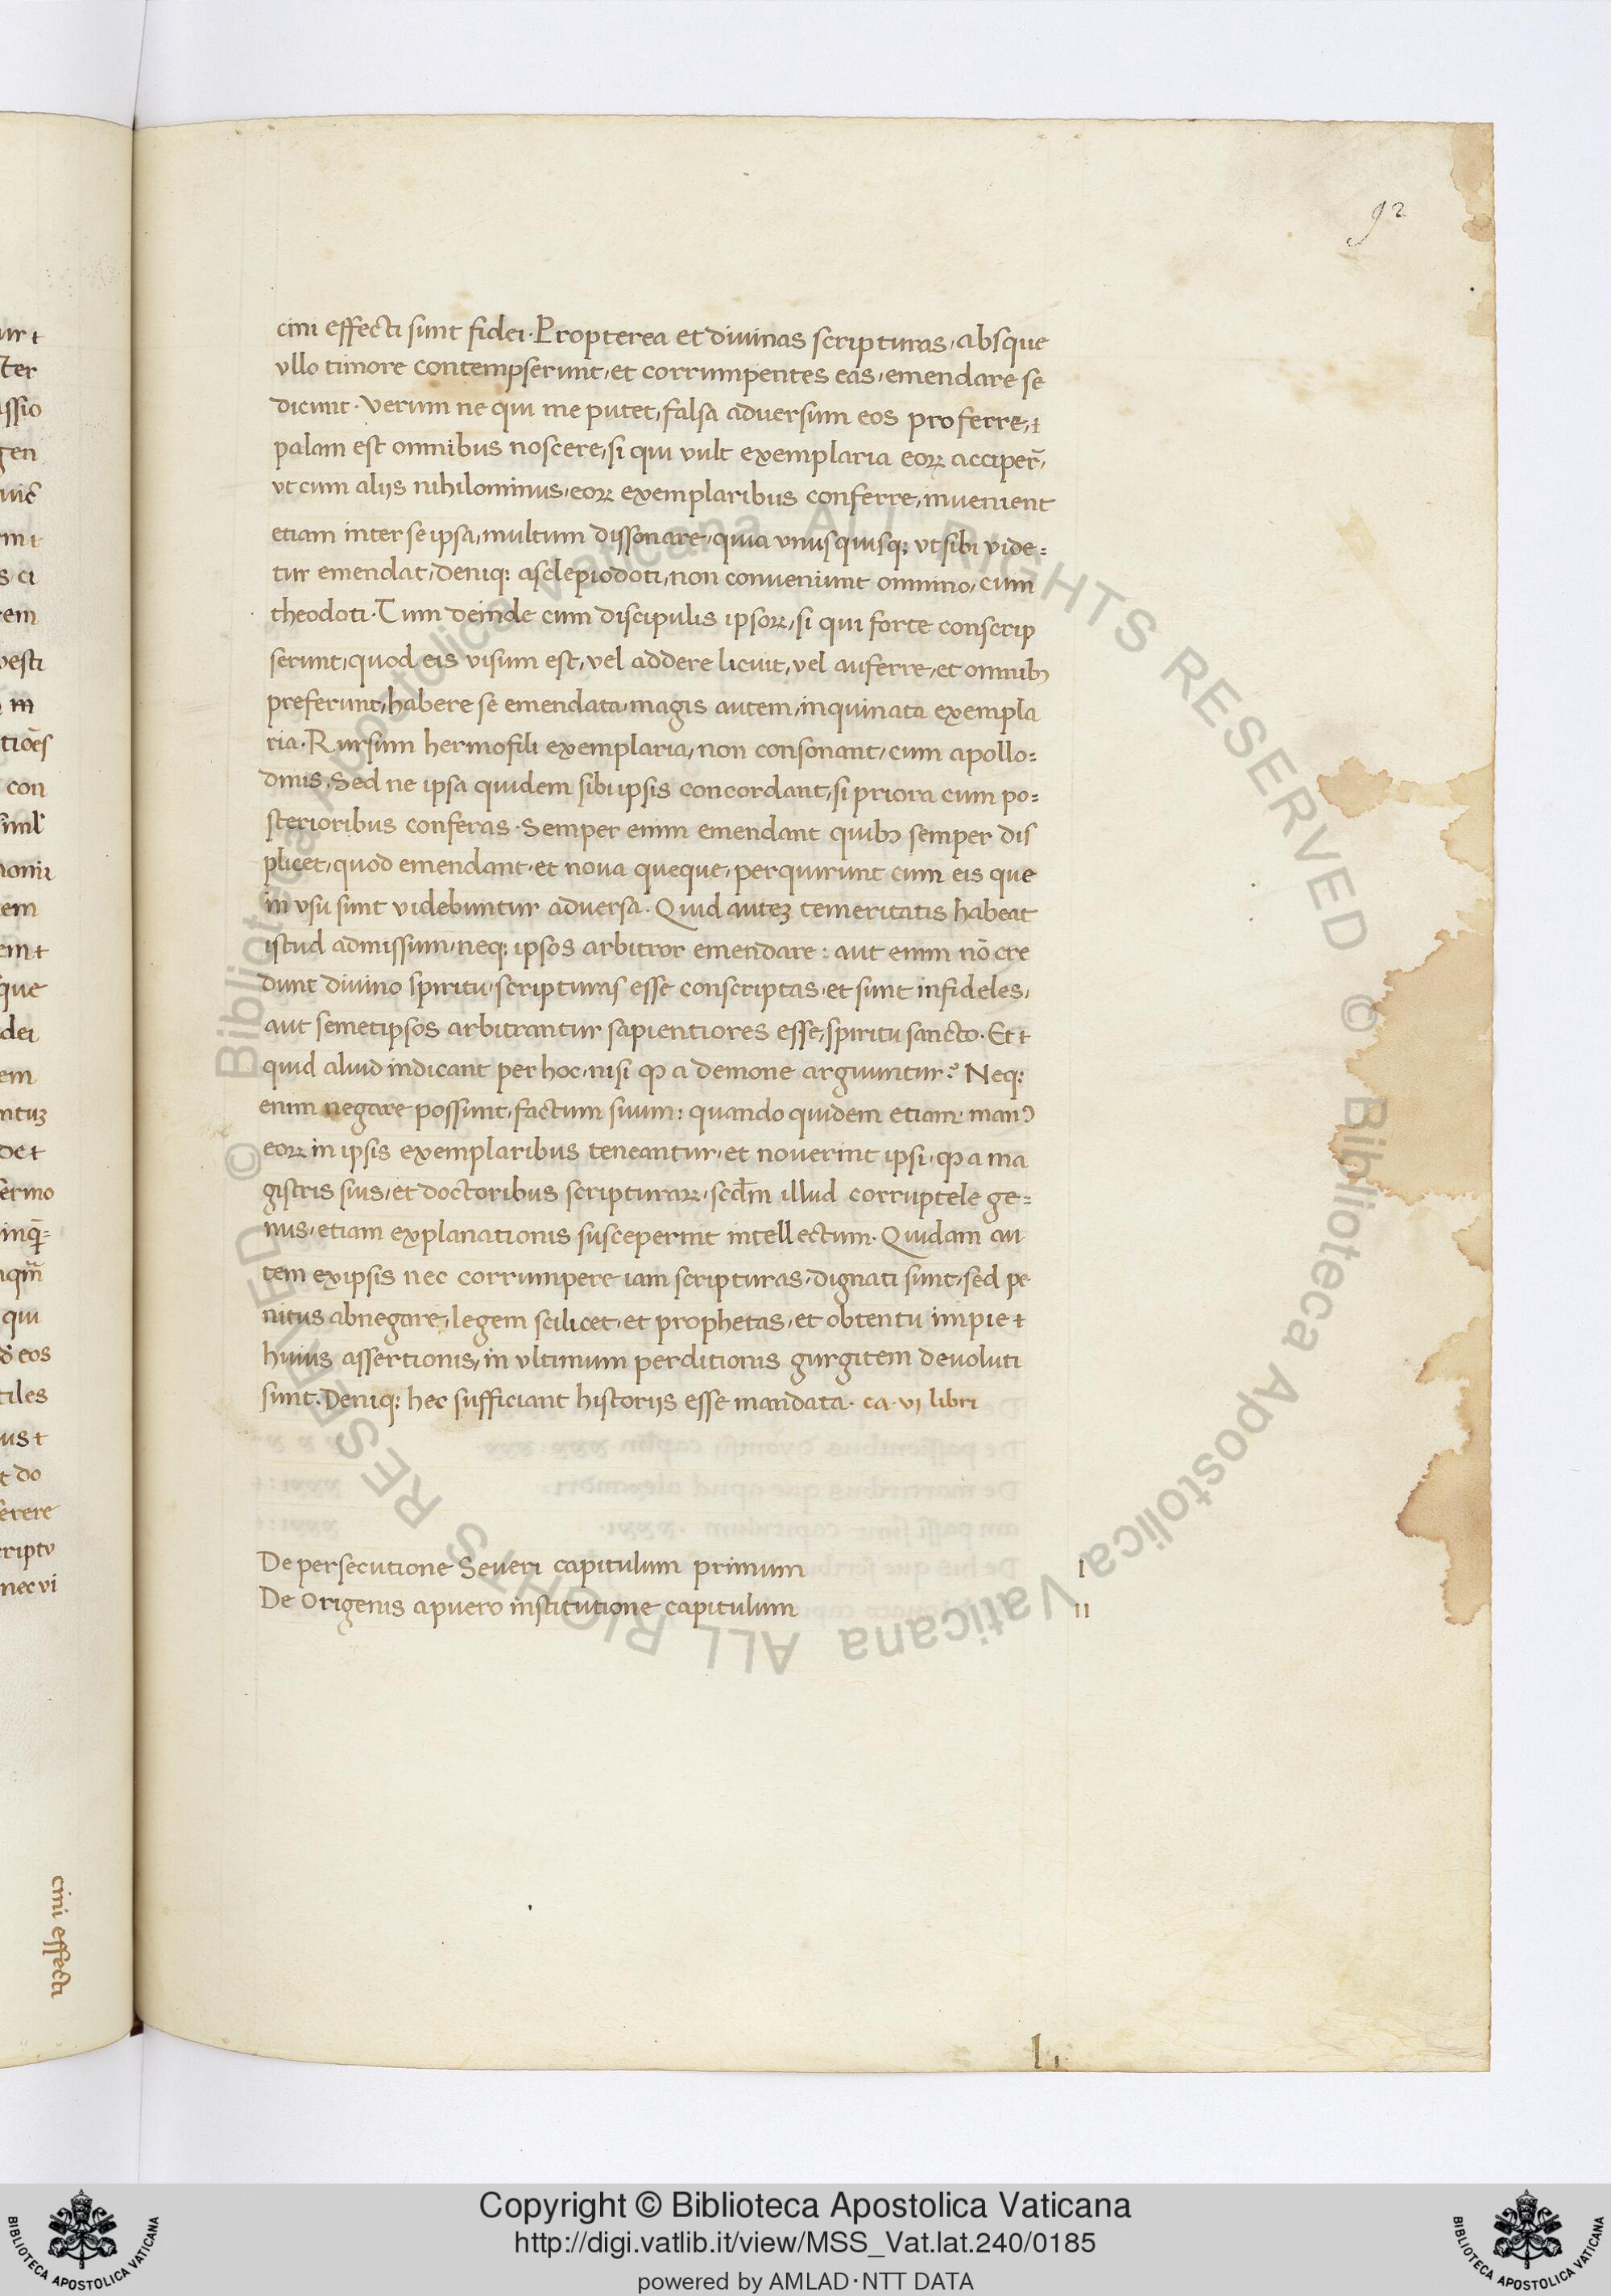 92
cini effecti sunt fidei. Propterea et divinas scripturas, absque
ullo timore contempserunt, et corrumpentes eas, emendare se
dicunt. Verum ne qui me putet, falsa adversum eos proferre,
palam est omnibus noscere, si qui vult exemplaria eoꝝ acciper̄,
vt cum alijs nihilominus, eoꝝ exemplaribus conferre, invenient
etiam inter se ipsa, multum dissonare, quia unusquisq; vt sibi vide=
tur emendat, Deniq; asclepiodoti, non conveniunt omnino, cum
theodoti. Tum deinde cum discipulis ipsoꝝ, si qui forte conscrip
serunt, quod eis visum est, vel addere licuit, vel auferre, et omnibꝫ
preferunt, habere se emendata, magis autem, inquinata exempla
ria. Rursum hermofili exemplaria, non consonant, cum apollo=
dmis. Sed ne ipsa quidem sibi ipsis concordant, si priora cum po=
sterioribus conferas. Semper enim emendant quibꝫ semper dis
plicet, quod emendant, et nova queque, perquirunt cum eis que
in usu sunt videbuntur adversa. Quid auteꝫ temeritatis habeat
istud admissum, neq; ipsos arbitror emendare: aut enim nō cre
dunt divino spiritu, scripturas esse conscriptas, et sunt infideles,
aut semetipsos arbitrantur sapientiores esse, spiritu sancto. Et
quid aliud indicant per hoc, nisi ꝙ a demone arguuntur? Neq;
enim negare possunt, factum suum: quando quidem etiam manꝰ
eoꝝ in ipsis exemplaribus teneantur, et noverint ipsi, ꝙ a ma
gistris suis, et doctoribus scripturaꝝ, scd̄m illud corruptele ge=
nus, etiam explanationis susceperint intellectum. Quidam au
tem ex ipsis nec corrumpere iam scripturas, dignati sunt, sed pe
nitus abnegare, legem scilicet, et prophetas, et obtentu impie
huius assertionis, in ultimum perditionis gurgitem devoluti
sunt. Deniq; hec sufficiant historijs esse mandata. ca. vj libri
De persecutione Severi capitulum primum I
De Origenis a puero institutione capitulum II
cini effecti
Copyright © Biblioteca Apostolica Vaticana
http://digi.vatlib.it/view/MSS_Vat.lat.240/0185
powered by AMLAD·NTT DATA
BIBLIOTECA APOSTOLICA VATICANA
BIBLIOTECA APOSTOLICA VATICANA
© Biblioteca Apostolica Vaticana ALL RIGHTS RESERVED
© Biblioteca Apostolica Vaticana ALL RIGHTS RESERVED